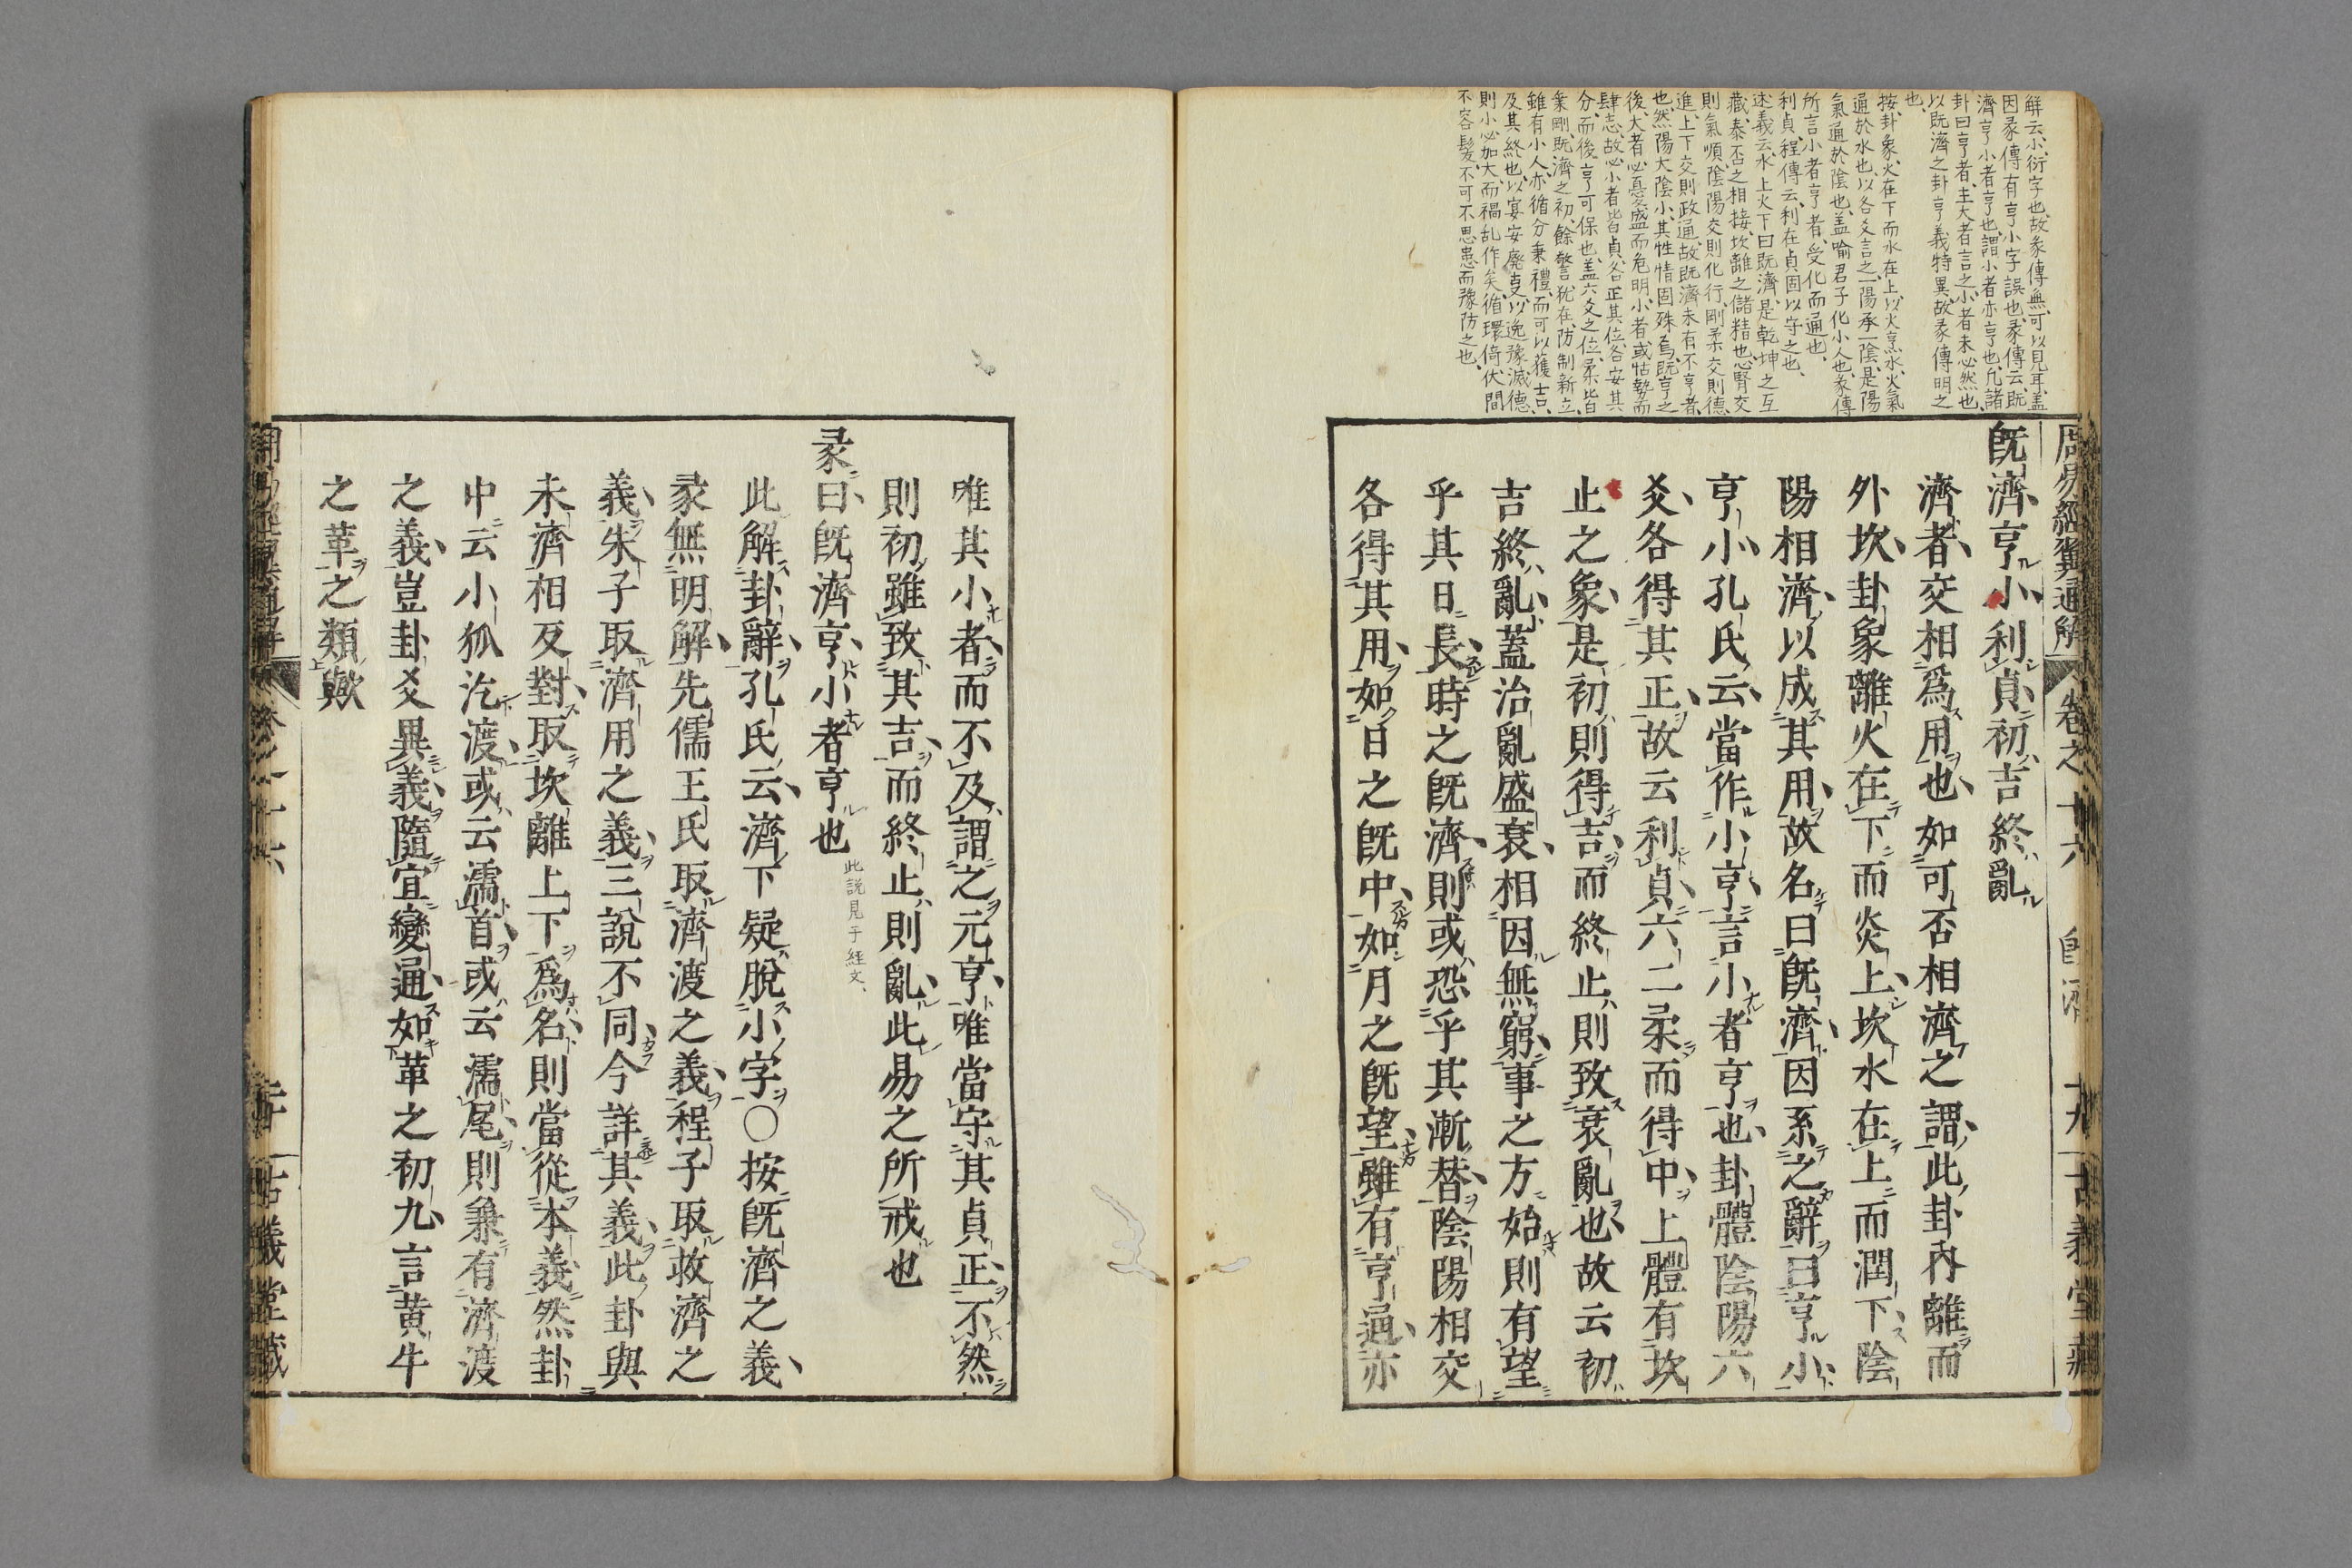 周易經翼通解 卷之十六 既濟 十九 古義堂藏
解云、小、衍字也、故彖傳無、可以見耳、蓋
因彖傳有亨小字誤也、彖傳云、既
濟亨小者亨也、謂小者亦亨也、凡諸
卦曰亨者、主大者言之、小者未必然也、
以既濟之卦亨義特異、故彖傳明之
也、
按、卦象、火在下而水在上、以火烹水、火氣
通於水也、以各爻言之、一陽承一陰、是陽
氣通於陰也、蓋喻君子化小人也、彖傳
所言小者亨者、受化而通也、
利貞、程傳云、利在貞固以守之也、
述義云、水上火下曰既濟、是乾坤之互
藏、泰否之相接、坎離之儲精也、腎交
則氣順、陰陽交則化行、剛柔交則德
進、上下交則政通、故既濟未有不亨者
也、然陽大陰小、其性情固殊焉、既亨之
後、大者必憂盛而危明、小者或怙勢而
肆志、故必小者皆貞、各正其位、各安其
分、而後亨可保也、蓋六爻之位、柔皆
乗剛、既濟之初、餘警犹在、防制新立、
雖有小人、亦循分秉禮、而可以獲吉、
及其終也、以宴安廃支、以逸豫滅德、
則小必加大、而禍乱作矣、循環倚伏、間
不容髮、不可不思患而豫防之也、
既濟、亨小利貞、初吉終亂
濟者、交相為用也、如可否相濟之謂、此卦内離而
外坎、卦象離火在下而炎上、坎水在上而潤下、陰
陽相濟、以成其用、故名曰既濟、因系之辭曰亨小、
亨小、孔氏云、當作小亨、言小者亨也、卦體陰陽六
爻、各得其正、故云利貞、六二柔而得中、上體有坎
止之象、是初則得吉、而終止則致衰亂也、故云初
吉終亂、蓋治亂盛衰、相因無窮、事之方始則有望
乎其日長、時之既濟、則或恐乎其漸替、陰陽相交
各得其用、如日之既中、如月之既望、雖有亨通、亦
唯其小者、而不及、謂之元亨、唯當守其貞正、不然
則初雖致其吉、而終止則亂、此易之所戒也
彖曰、既濟亨、小者亨也 此説見于經文、
此解卦辭、孔氏云、濟下疑脱小字○按既濟之義
彖無明解、先儒王氏取濟渡之義、程子取救濟之
義、朱子取濟用之義、三說不同、今詳其義、此卦與
未濟相反對、取坎離上下為名、則當從本義、然卦
中云小狐汔渡、或云濡首、或云濡尾、則兼有濟渡
之義、豈卦爻異義、隨宜變通、如革之初九、言黄牛
之革之類歟
周易經翼通解 卷之十六 古義堂藏